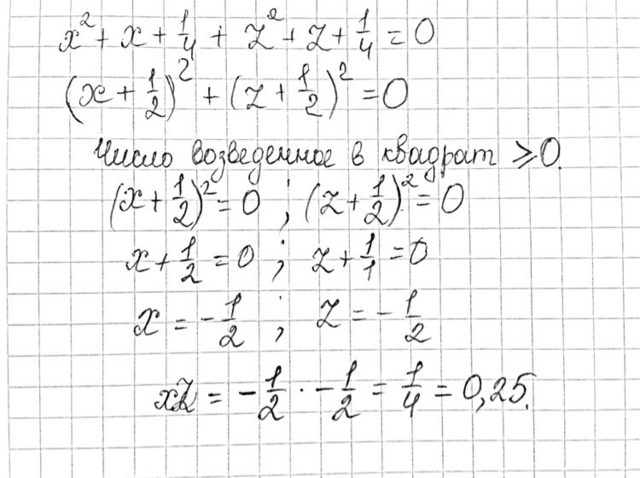 x² + x + 1/4 + z² + z + 1/4 = 0
(x + 1/2)² + (z + 1/2)² = 0
Число возведенное в квадрат ⩾ 0.
(x + 1/2)² = 0 ; (z + 1/2)² = 0
x + 1/2 = 0 ; z + 1/1 = 0
x = -1/2 ; z = -1/2
xz = -1/2 · -1/2 = 1/4 = 0,25.